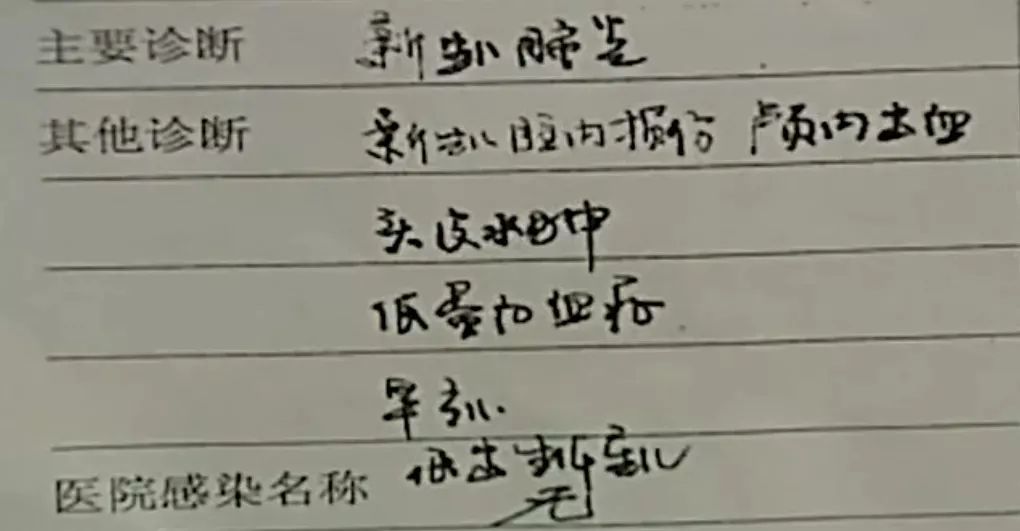 主要诊断 新生儿肺炎
其他诊断 新生儿脑内损伤 颅内出血
头皮水肿
低蛋白血症
早产儿.
低出生体重儿
医院感染名称 无